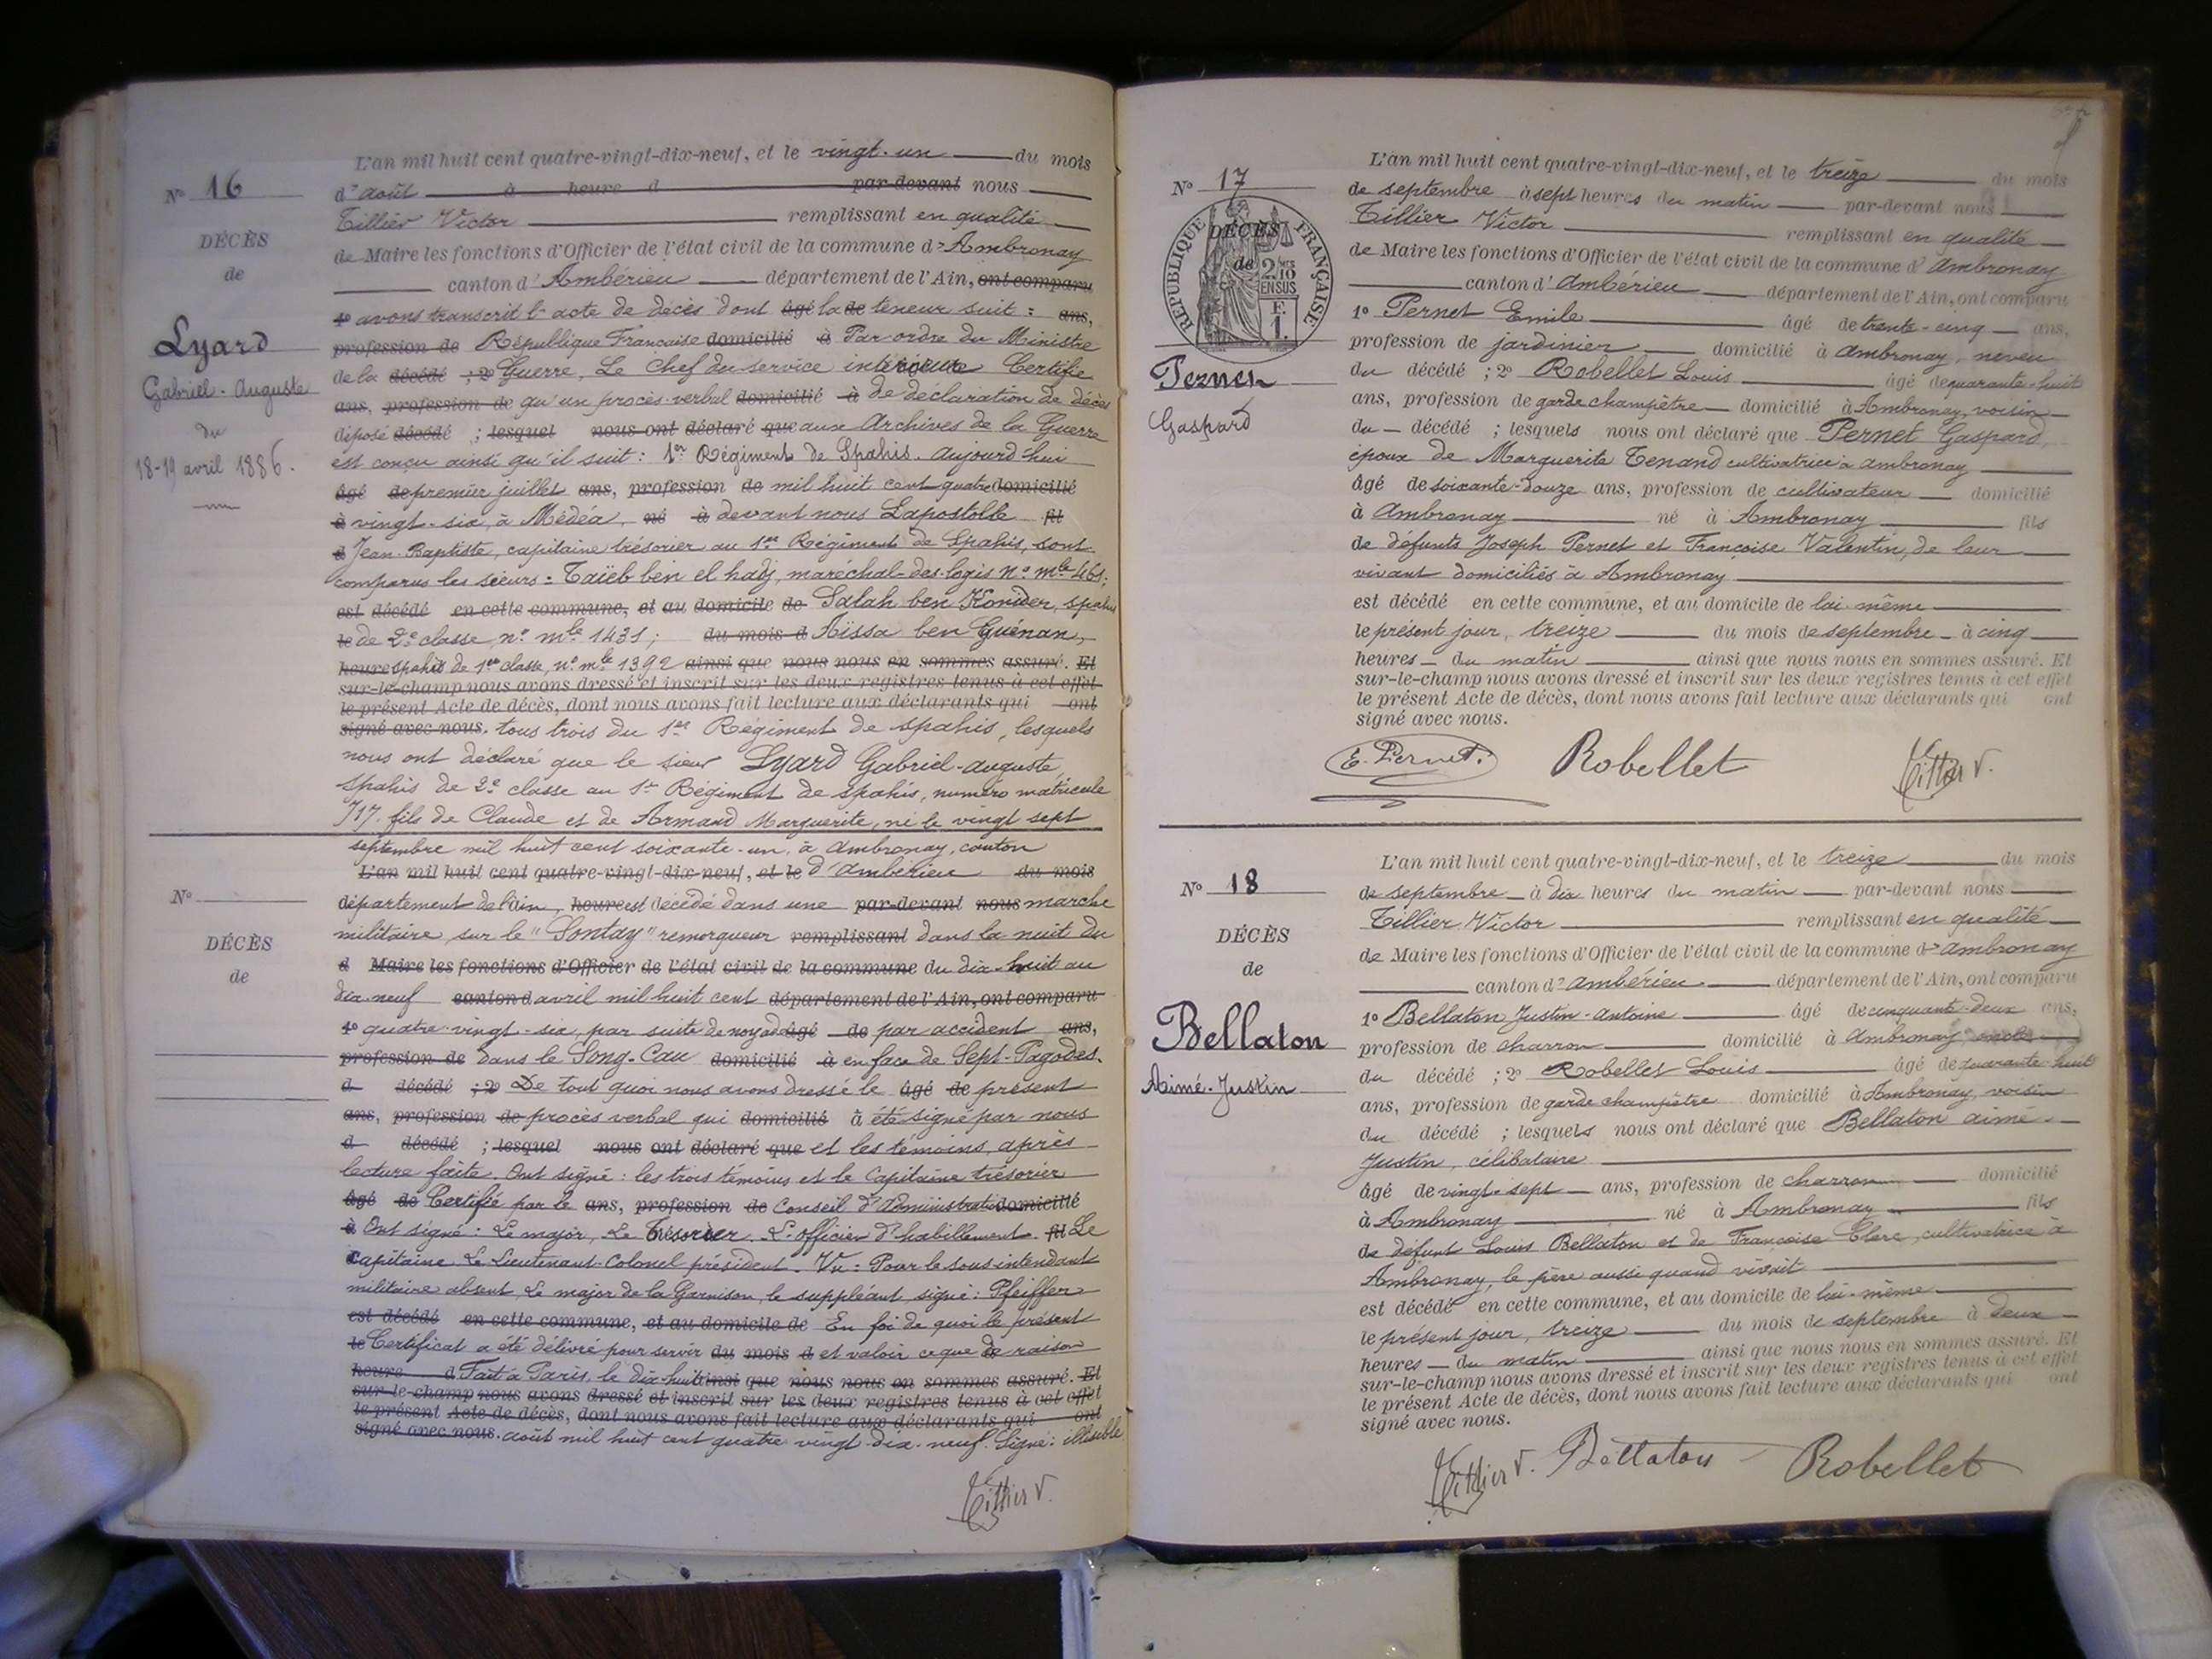 L'an mil huit cent quatre-vingt-dix-neuf, et le vingt-un du mois
N° 16
d' août à heure d par-devant nous
Tillier Victor remplissant en qualité
DÉCÈS
de Maire les fonctions d'Officier de l'état civil de la commune d' Ambronay
de
canton d' Ambérieu département de l'Ain, ont comparu
1° avons transcrit l'acte de décès dont âgé la de teneur suit : ans,
Lyard
profession de République Française domicilié à Par ordre du Ministre
de la décédé ; 2° Guerre, Le Chef du service intérieur Certifie
Gabriel-Auguste
ans, profession de qu'un procès-verbal domicilié à de déclaration de décès
du
déposé décédé ; lesquel nous ont déclaré que aux Archives de la Guerre
18-19 avril 1886.
est conçu ainsi qu'il suit : 1er Régiment de Spahis. Aujourd'hui
âgé de premier juillet ans, profession de mil huit cent quatre domicilié
à vingt-six, à Médéa, né à devant nous Lapostolle fil
d Jean-Baptiste, capitaine trésorier au 1er Régiment de Spahis, sont
comparus les sieurs : Taïeb ben el hadj, maréchal-des-logis n° mle 461;
est décédé en cette commune, et au domicile de Salah ben Konider, spahis
le de 2e classe, n° mle 1431; du mois d Aïssa ben Guénan,
heure spahis de 1re classe, n° mle 1392 ainsi que nous nous en sommes assuré. Et
sur-le-champ nous avons dressé et inscrit sur les deux registres tenus à cet effet
le présent Acte de décès, dont nous avons fait lecture aux déclarants qui ont
signé avec nous. tous trois du 1er Régiment de spahis, lesquels
nous ont déclaré que le sieur Lyard Gabriel-Auguste,
spahis de 2e classe au 1er Régiment de spahis, numéro matricule
717. fils de Claude et de Armand Marguerite, né le vingt sept
septembre mil huit cent soixante-un, à Ambronay, canton
L'an mil huit cent quatre-vingt-dix-neuf, et le d'Ambérieu du mois
N°
département de l'Ain, heure est décédé dans une par-devant nous marche
militaire, sur le "Sontay" remorqueur remplissant dans la nuit du
DÉCÈS
d Maire les fonctions d'Officier de l'état civil de la commune du dix-huit au
de
dix-neuf canton d avril mil huit cent département de l'Ain, ont comparu
1° quatre-vingt-six, par suite de noyade âgé de par accident ans,
profession de dans le Song-Cau domicilié à en face de Sept-Pagodes.
d décédé ; 2° De tout quoi nous avons dressé le âgé de présent
ans, profession de procès verbal qui domicilié à été signé par nous
d décédé ; lesquel nous ont déclaré que et les témoins, après
lecture faite. Ont signé : les trois témoins et le Capitaine trésorier
âgé de Certifié par le ans, profession de Conseil d'Administrat domicilié
à Ont signé : Le major, Le Trésorier, L'officier d'habillement. fil Le
capitaine. Le Lieutenant-Colonel président. Vu : Pour le sous intendant
militaire absent, Le major de la Garnison, le suppléant, signé : Pfeiffer
est décédé en cette commune, et au domicile de En foi de quoi le présent
le Certificat a été délivré pour servir du mois d et valoir ce que de raison
heure d Fait à Paris, le dix-huit ainsi que nous nous en sommes assuré. Et
sur-le-champ nous avons dressé et inscrit sur les deux registres tenus à cet effet
le présent Acte de décès, dont nous avons fait lecture aux déclarants qui ont
signé avec nous. août mil huit cent quatre vingt-dix-neuf. Signé : illisible
Tillier V.
L'an mil huit cent quatre-vingt-dix-neuf, et le treize du mois
N° 17
de septembre à sept heures du matin par-devant nous
Tillier Victor remplissant en qualité
RÉPUBLIQUE FRANÇAISE
DÉCÈS
de
2 10
EN SUS
F.
1.
de Maire les fonctions d'Officier de l'état civil de la commune d' Ambronay
canton d' Ambérieu département de l'Ain, ont comparu
1° Pernet Emile âgé de trente-cinq ans,
profession de jardinier domicilié à Ambronay, neveu
Pernet
du décédé ; 2° Robellet Louis âgé de quarante-huit
Gaspard
ans, profession de garde champêtre domicilié à Ambronay, voisin
du décédé ; lesquels nous ont déclaré que Pernet Gaspard,
époux de Marguerite Tenand cultivatrice à Ambronay
âgé de soixante-douze ans, profession de cultivateur domicilié
à Ambronay né à Ambronay fils
de défunts Joseph Pernet et Françoise Valentin, de leur
vivant domiciliés à Ambronay
est décédé en cette commune, et au domicile de lui-même
le présent jour, treize du mois de septembre à cinq
heures du matin ainsi que nous nous en sommes assuré. Et
sur-le-champ nous avons dressé et inscrit sur les deux registres tenus à cet effet
le présent Acte de décès, dont nous avons fait lecture aux déclarants qui ont
signé avec nous.
E. Pernet. Robellet Tillier V.
L'an mil huit cent quatre-vingt-dix-neuf, et le treize du mois
N° 18
de septembre à dix heures du matin par-devant nous
Tillier Victor remplissant en qualité
DÉCÈS
de Maire les fonctions d'Officier de l'état civil de la commune d' Ambronay
de
canton d' Ambérieu département de l'Ain, ont comparu
1° Bellaton Justin-Antoine âgé de cinquante-deux ans,
Bellaton
profession de charron domicilié à Ambronay, oncle
du décédé ; 2° Robellet Louis âgé de quarante-huit
Aimé-Justin
ans, profession de garde champêtre domicilié à Ambronay, voisin
du décédé ; lesquels nous ont déclaré que Bellaton Aimé
Justin, célibataire
âgé de vingt-sept ans, profession de charron domicilié
à Ambronay né à Ambronay fils
de défunt Louis Bellaton et de Françoise Clerc, cultivatrice à
Ambronay, le père aussi quand vivait
est décédé en cette commune, et au domicile de lui-même
le présent jour, treize du mois de septembre à deux
heures du matin ainsi que nous nous en sommes assuré. Et
sur-le-champ nous avons dressé et inscrit sur les deux registres tenus à cet effet
le présent Acte de décès, dont nous avons fait lecture aux déclarants qui ont
signé avec nous.
Tillier V. Bellaton Robellet